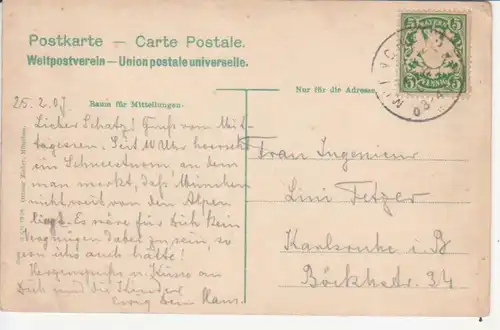 Postkarte – Carte Postale.
Weltpostverein – Union postale universelle.
25.2.07
Raum für Mitteilungen.
Nur für die Adresse.
BAYERN
5 5
PFENNIG
Lieber Schatz! Gruß vom Mit-
tagessen. Seit 10 Uhr herrscht
ein Schneesturm, an dem
man merkt, daß München
nicht weit von den Alpen
liegt. Es wäre für Dich kein
Vergnügen dabei zu sein, so
gern ich's auch hätte!
Herzensgrüße u. Küsse an
Dich und die Kinder
Ewig Dein Hans.
Frau Ingenieur
Lini Fetzer
Karlsruhe i. B
Böckhstr. 34
Ottmar Zieher, München.